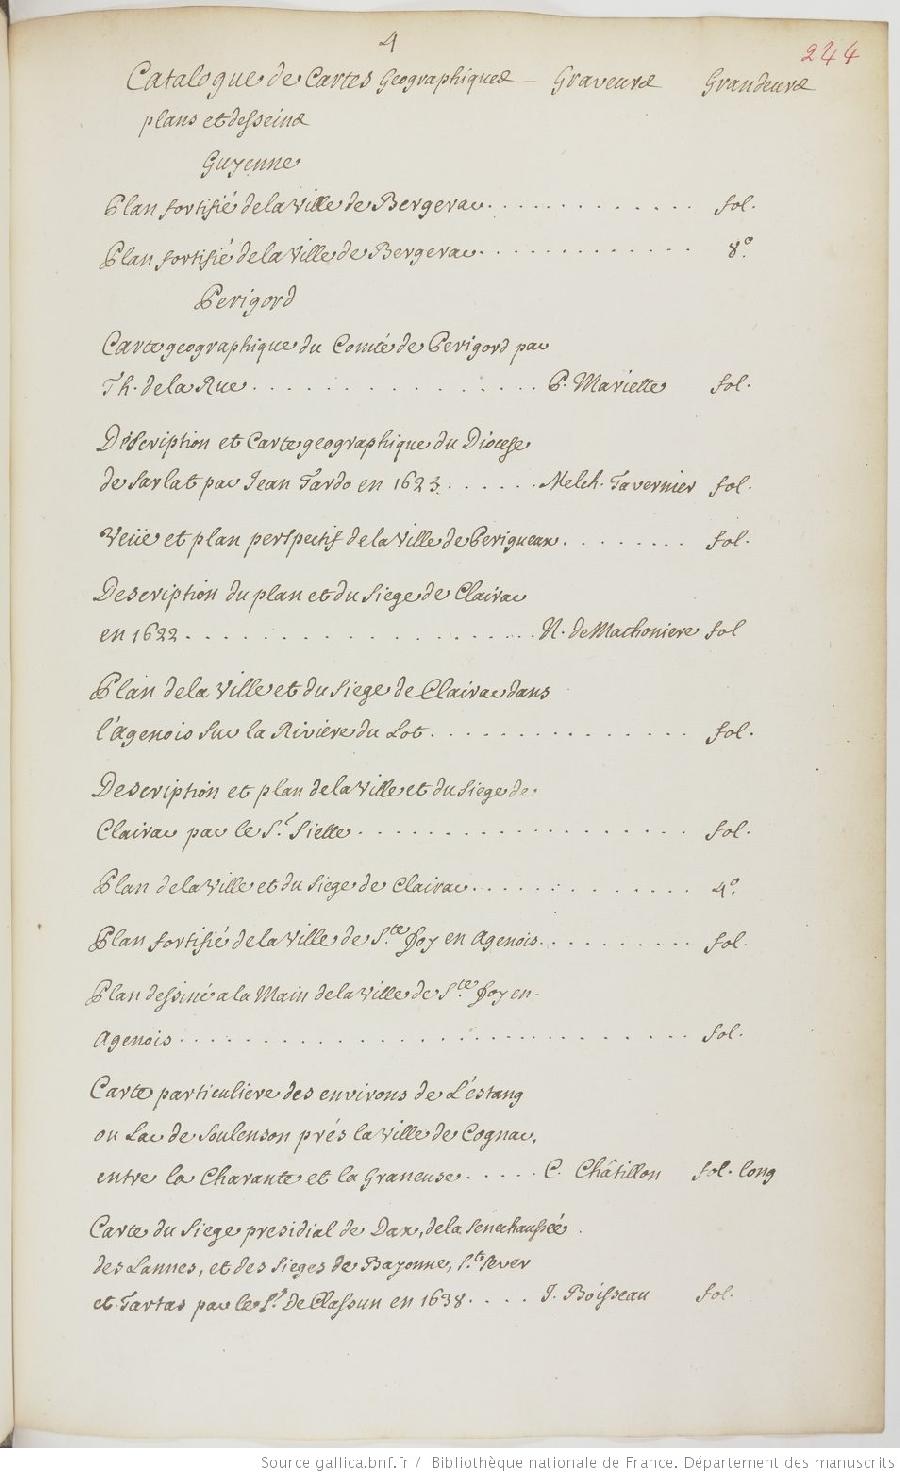 4
244
Catalogue de Cartes Geographiques Graveurs Grandeurs
plans et desseins
Guyenne
Plan fortifié de la Ville de Bergerac. . . . . . . . . . . . fol.
Plan fortifié de la Ville de Bergerac. . . . . . . . . . . . 8º.
Perigord
Carte geographique du Comté de Perigord par
Th. de la Rue. . . . . . . . . . . . . . . . P. Mariette fol.
Déscription et Carte geographique du Diocese
de Sarlat par Jean Tardo en 1623. . . . . . Melch. Tavernier fol.
Veüe et plan perspectif de la Ville de Perigueux. . . . . . . . fol.
Description du plan et du siege de Clairac
en 1622. . . . . . . . . . . . . . . . . . . N. de Mathoniere fol
Plan de la Ville et du siege de Clairac dans
l'Agenois sur la Riviere du Lot. . . . . . . . . . . . . fol.
Description et plan de la Ville et du siege de
Clairac par le Sr. Siette. . . . . . . . . . . . . . . . fol.
Plan de la Ville et du siege de Clairac. . . . . . . . . . . 4º.
Plan fortifié de la Ville de Ste. Foy en Agenois. . . . . . . . . fol.
Plan dessiné a la Main de la Ville de Ste. Foy en
Agenois. . . . . . . . . . . . . . . . . . . . . . . . fol.
Carte particuliere des environs de L'éstang
ou Lac de Soulenson prés la Ville de Cognac,
entre la Charante et la Graneuse. . . . . C. Châtillon fol. long
Carte du Siege presidial de Dax, de la Senechaussée
des Lannes, et des Sieges de Bayonne, St. Sever
et Tartas par le Sr. De Classun en 1638. . . . J. Boisseau fol.
Source gallica.bnf.fr / Bibliothèque nationale de France. Département des manuscrits